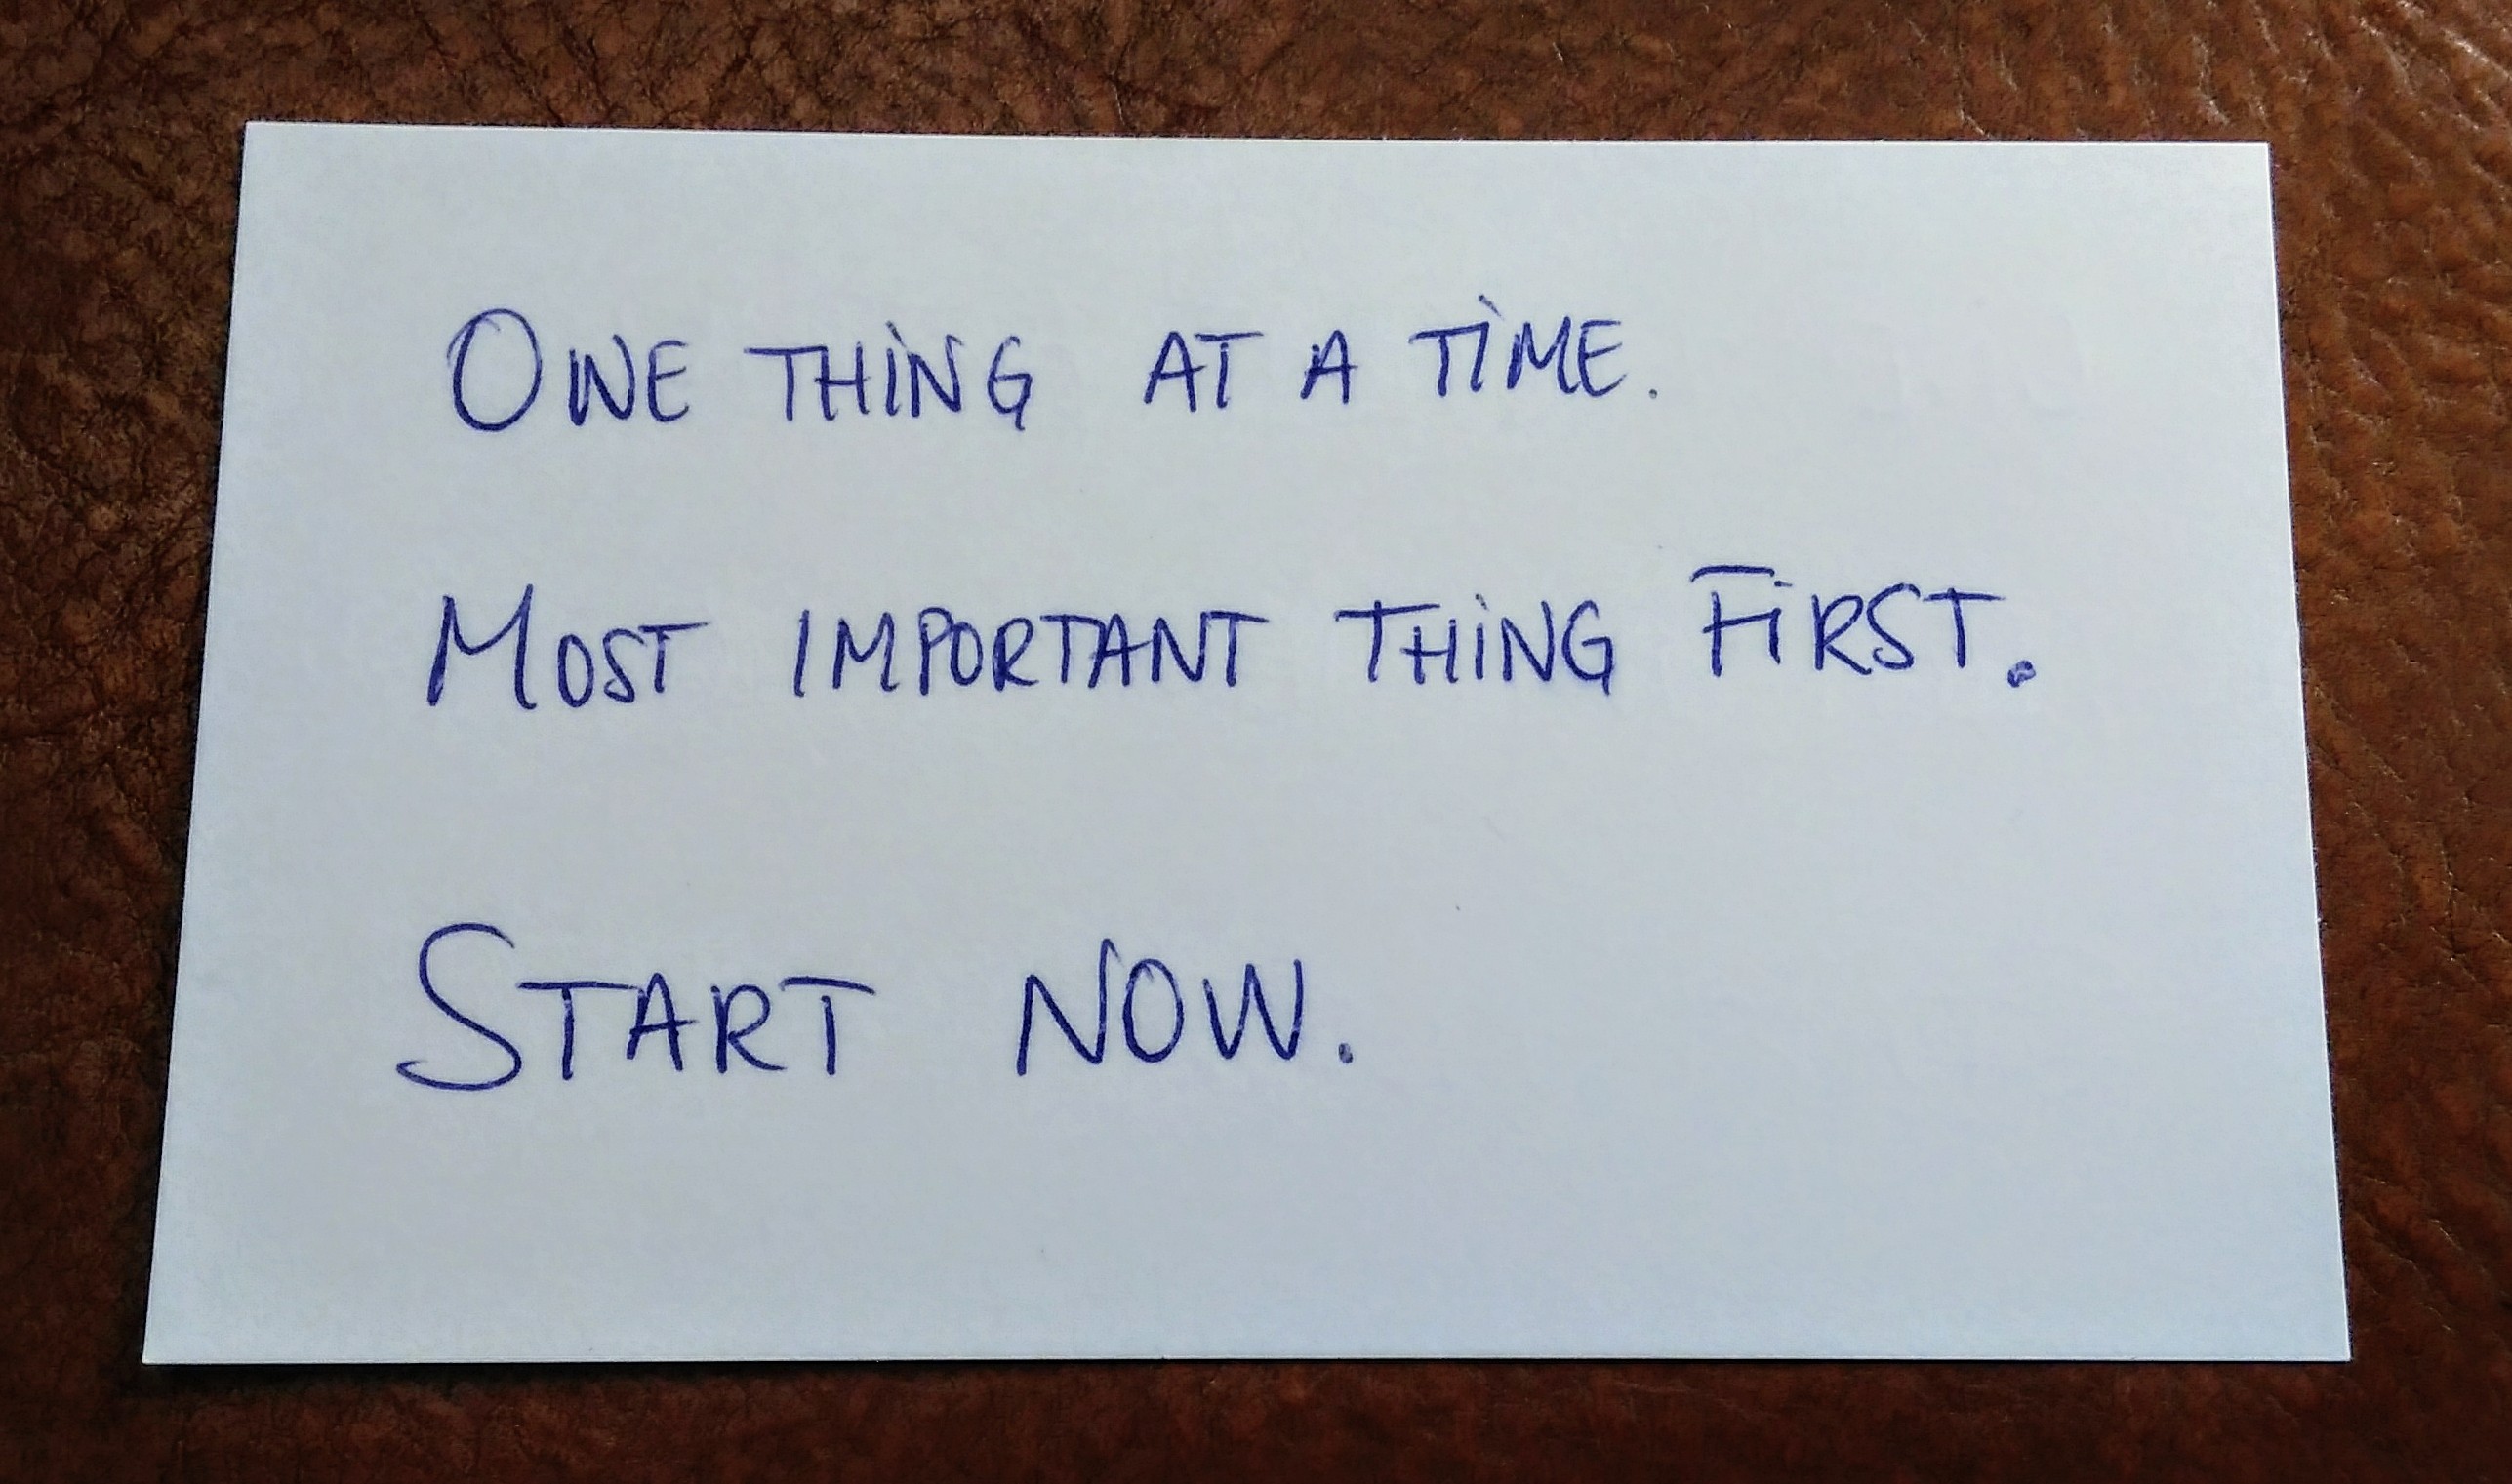 ONE THING AT A TIME.
MOST IMPORTANT THING FIRST.
START NOW.